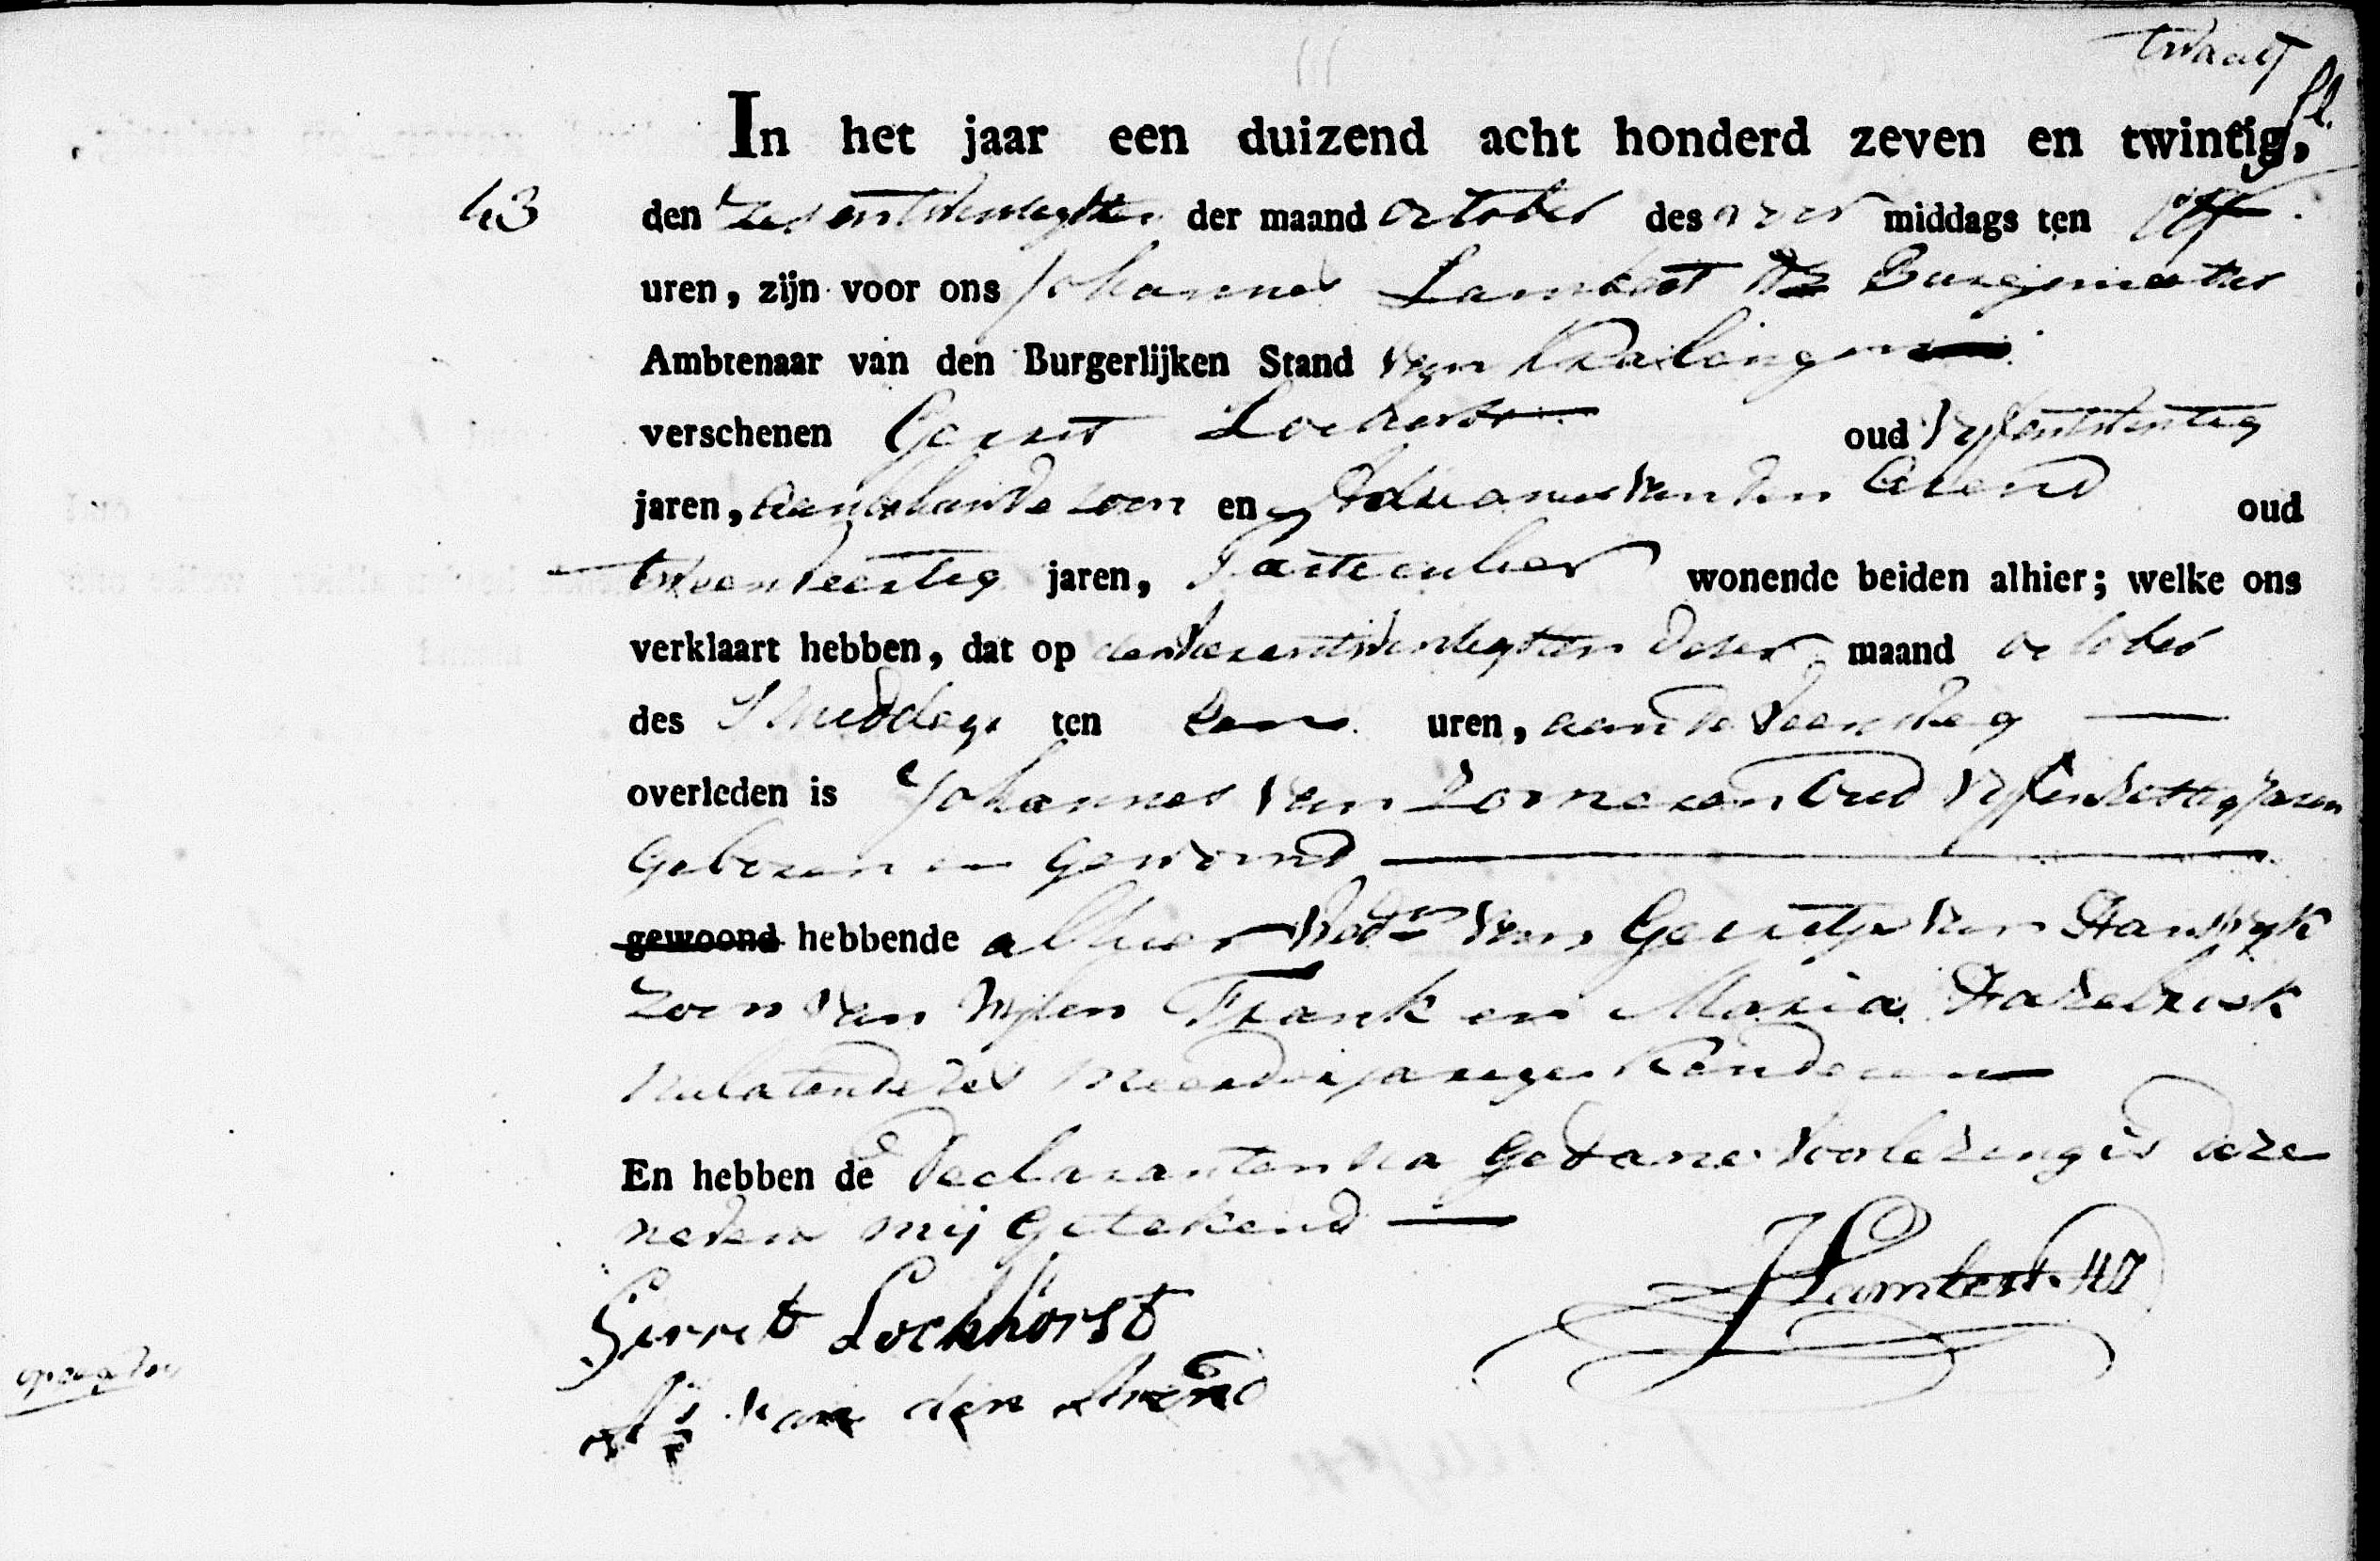 twaalf
In het jaar een duizend acht honderd zeven en twintig,
43 den zesentwintigsten der maand october des voor middags ten
uren, zijn voor ons Johannes Lambert Hz Burgemeester
Ambtenaar van den Burgerlijken Stand van Kralingen
verschenen Gerrit Lockhorst oud vyfentwintig
jaren, aanbehuwde zoon en Adrianus van den Arend oud
tweenveertig jaren, Particulier wonende beiden alhier; welke ons
verklaart hebben, dat op den deser maand october
des Smiddags ten een uren, aan de Veensteeg
overleden is Johannes van oud jaren
Geboren en Gewoond
gewoond hebbende alhier van Gerritje van
zoon van wylen Frank en Maria
nalatende zes meerderjarige kinderen
En hebben de Declaranten na Gedane voorlezing is deze
nevens mij Getekend
Gerrit Lockhorst
JLambert HZ
As van den Arend